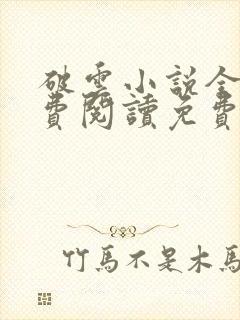 破雲小說全
費閱讀免費
竹馬不是木馬